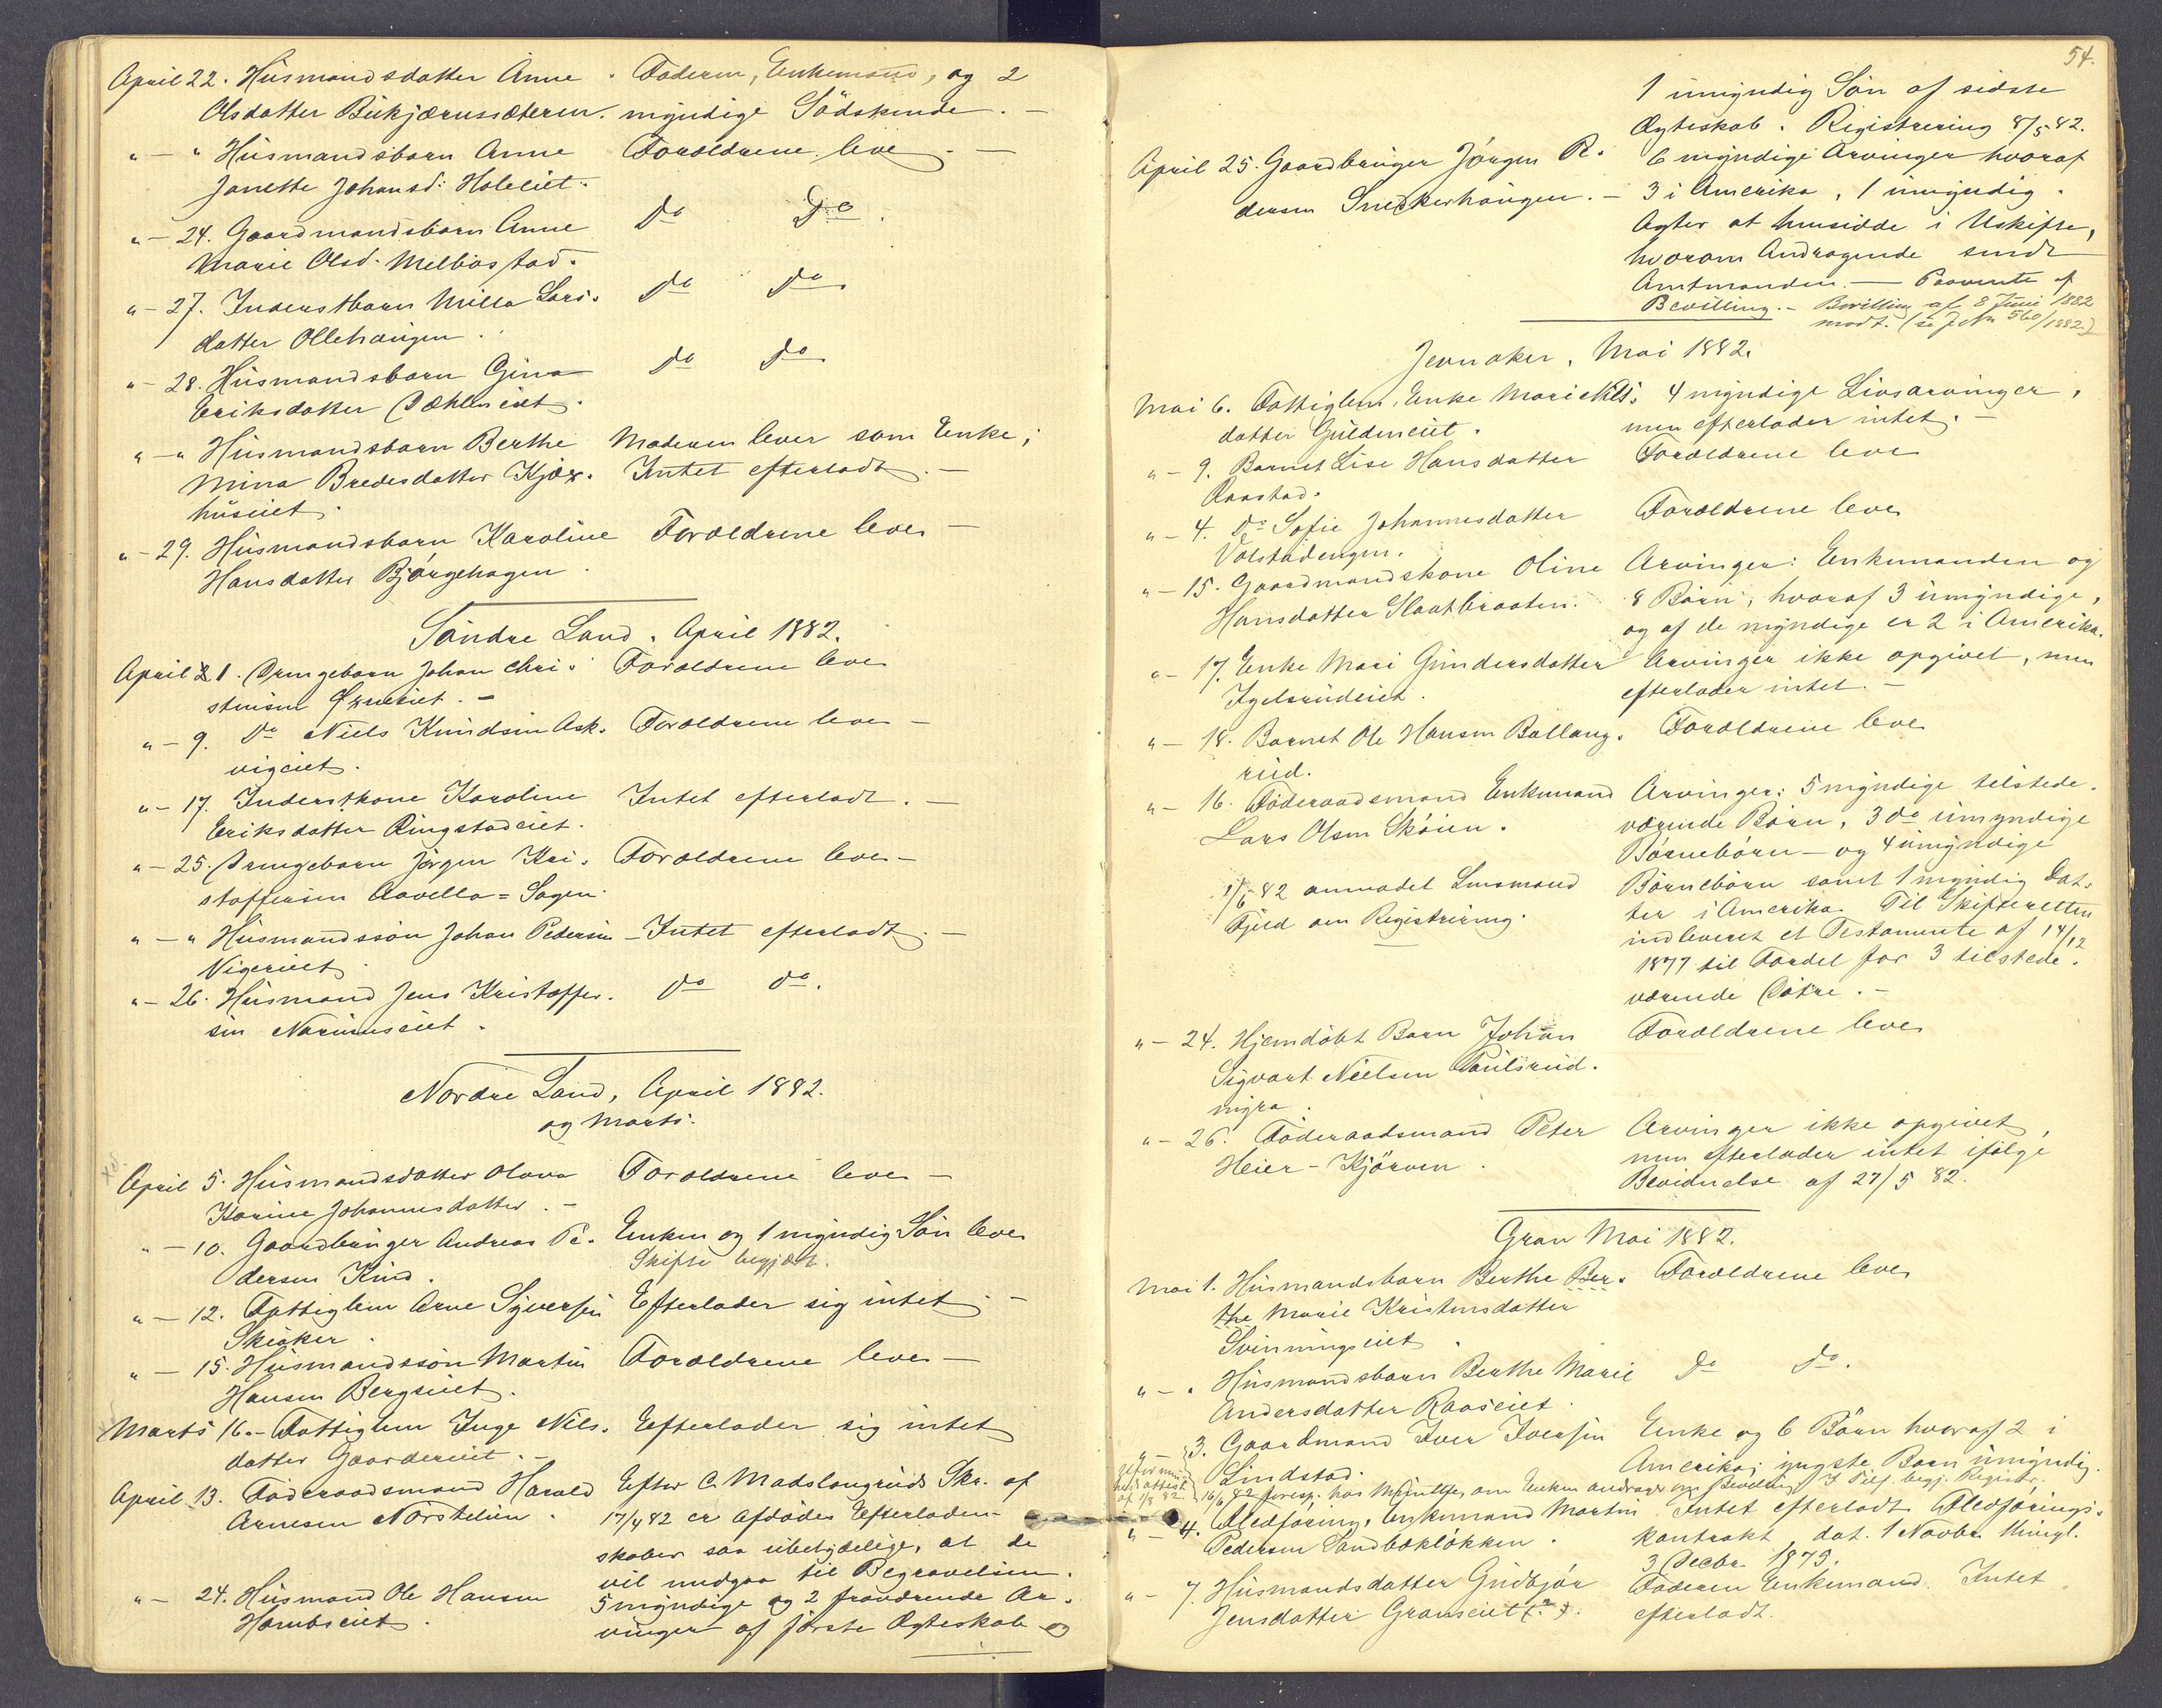 April 22. Husmandsdatter Anne Faderen, Enkemand, og 2
Olsdatter Birkjærnssæteren. myndige Södskende. —
" — " Husmandsbarn Anne Forældrene leve —
Janette Johansd: Holeiet.
" — 24. Gaardmandsbarn Anne Do Do.
Marie Olsd. Melbostad.
" — 27. Inderstbarn Milla Lars. Do Do
datter Ollehaugen.
" — 28. Husmandsbarn Gina Do Do
Eriksdatter Dæhleneiet.
" — " Husmandsbarn Berthe Moderen lever som Enke;
Mina Bredesdatter Kjær. Intet efterladt. —
huseiet.
" — 29. Husmandsbarn Karoline Forældrene leve —
Hansdatter Bjørgehagen.
Söndre Land. April 1882.
April 1. Drengebarn Johan Chri. Forældrene leve
stensen
" — 9. Do Niels Knudsen Ask. Forældrene leve —
vigeiet.
" — 17. Inderstkone Karoline Intet efterladt. —
Eriksdatter Ringstadeiet.
" — 25. Drengebarn Jörgen Kri. Forældrene leve —
stoffersen Aavella = Sagen.
" — " Husmandssön Johan Pedersen — Intet efterladt. —
Vigeriet
" — 26. Husmand Jens Kristoffer. Do Do.
sen
Nordre Land, April 1882.
og Marts.
April 5. Husmandsdatter Olava Forældrene leve —
Karine Johannesdatter. —
" — 10. Gaardbruger Andreas Pe. Enken og 1 myndig Sön leve
dersen Kind. Skifte begjært.
" — 12. Fattiglem Arne Syversen Efterlader sig intet —
Skiaker.
" — 15. Husmandssön Martin Forældrene leve —
Hansen Bergseiet.
Marts 16. — Fattiglem Inge Nils. Efterlader sig intet
datter Gaardereiet. —
April 13. Föderaadsmand Harald Efter C. Madslangruds Skr. af
Arnesen Nörstelien. 17/4 82 er Afdödes Efterladen-
skaber saa ubetydelige, at de
vil medgaa til Begravelsen.
" — 24. Husmand Ole Hansen 5 myndige og 2 fraværende Ar.
Hambreiet. vinger af förste Ægteskab og
54.
1 umyndig Sön af sidste
Ægteskab. Registrering 8/5 82.
April 25. Gaardbruger Jörgen Pe. 6 myndige Arvinger hvoraf
dersen Sneckerhaugen. — 3 i Amerika, 1 umyndig.
Agter at hensidde i Uskifte,
hvorom Andragende sendt
Amtmanden. — Paavente af
Bevilling. — Bevilling af 8 Juni 1882
modt. (se J.No 560/1882.)
Jevnaker, Mai 1882.
Mai 6. Fattiglem, Enke Mari Nils. 4 myndige Livsarvinger,
datter Guldeneiet. men efterlader intet. —
" — 9. Barnet Lise Hansdatter Forældrene leve
Raastad.
" — 4. Do Sofie Johannesdatter Forældrene leve
Volstadengen.
" — 15. Gaardmandskone Oline Arvinger: Enkemanden og
Hansdatter Slaatbraaten. 8 Börn, hvoraf 3 umyndige,
og af de myndige er 2 i Amerika.
" — 17. Enke Mari Gundersdatter Arvinger ikke opgivet, men
Igelsrudeiet. efterlader intet. —
" — 18. Barnet Ole Hansen Ballang. Forældrene leve
rud.
" — 16. Föderaadsmand Enkemand Arvinger: 5 myndige tilstede.
Lars Olsen Sköien. værende Börn, 3 do umyndige
Börnebörn — og 4 umyndige
1/6 82 anmodet Lensmand Börnebörn samt 1 myndig Dat.
Fjeld om Registrering. ter i Amerika. Til Skifteretten
indleveret et Testamente af 14/12
1877 til Fordel for 3 tilstede.
værende Döttre. —
" — 24. Hjemdöbt Barn Johan Forældrene leve
Sigvart Nielsen Paulsrud.
nigra.
" — 26. Föderaadsmand Peter Arvinger ikke opgivet,
Heier - Kjörven. men efterlader intet ifölge
Bevidnelse af 27/5 82.
Gran Mai 1882.
Mai 1. Husmandsbarn Berthe Ber. Forældrene leve
the Marie Kristensdatter
Svinningseiet.
" — " Husmandsbarn Berthe Marie Do Do.
Andersdatter Raaseiet.
" — 3. Gaardmand Iver Iversen Enke og 6 Börn hvoraf 2 i
Lindstad. Amerika; yngste Barn umyndig.
16/6 82 foresp. hos om Enken andrager om Bevilling. I Tilf. begj. Registr.
" — 4. Aledföring. Enkemand Martin Intet efterladt. Aledförings.
Pedersen Sandbækløkken. kontrakt dat. 1 Novbr. thingl.
3 Decbr. 1879.
" — 7. Husmandsdatter Gudbjör Faderen Enkemand. Intet
Jensdatter Granseiet (?). efterladt.